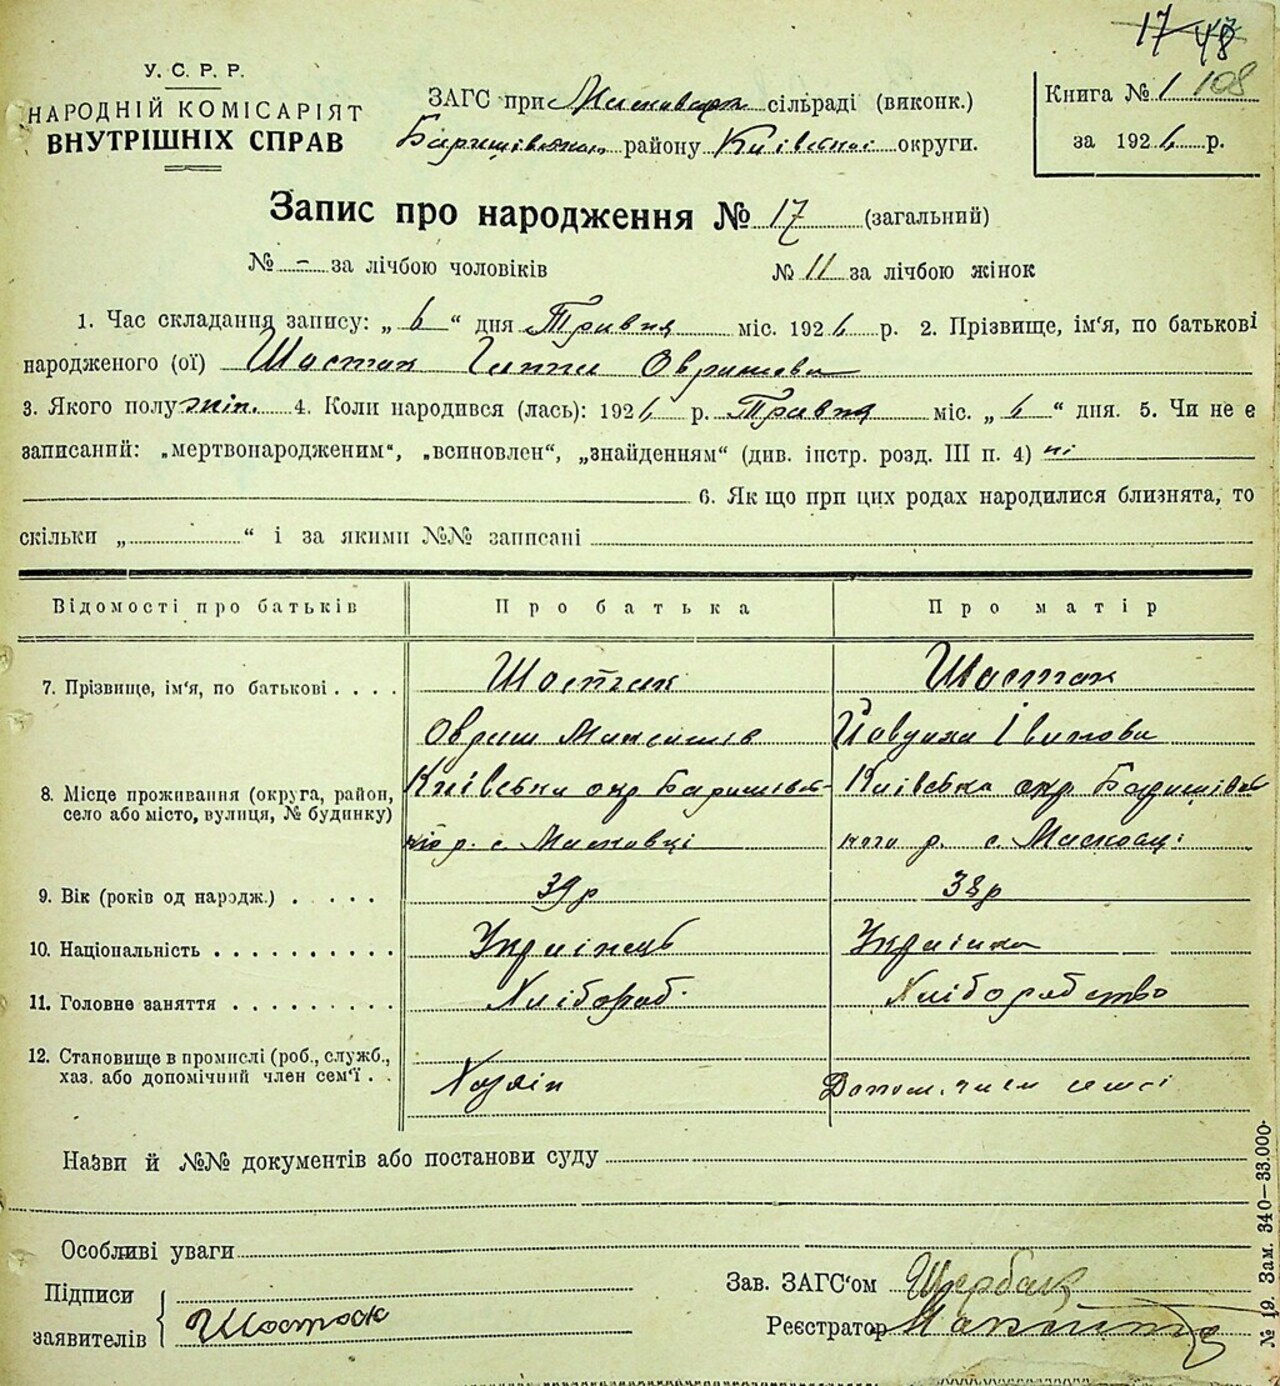 17 48
У. С. Р. Р.
НАРОДНІЙ КОМІСАРІЯТ
ВНУТРІШНІХ СПРАВ
ЗАГС при сільраді (виконк.)
Баришівськ. району Київської округи.
Книга № 1 108
за 1926 р.
Запис про народження № 17 (загальний)
№ - за лічбою чоловіків № 11 за лічбою жінок
1. Час складання запису: „ 6 “ дня Травня міс. 1926 р. 2. Прізвище, ім'я, по батькові
народженого (ої) Шостак Ганна Овришова
3. Якого полу жін. 4. Коли народився (лась): 1926 р. Травня міс. „ 6 “ дня. 5. Чи не є
записаний: „мертвонародженим“, „всиновлен“, „знайденням“ (див. інстр. розд. III п. 4) ні
6. Як що при цих родах народилися близнята, то
скільки „ “ і за якими №№ записані
Відомості про батьків Про батька Про матір
7. Прізвище, ім'я, по батькові . . . . Шостак Шостак
Овриш Максимів Йовдоха Іванова
8. Місце проживання (округа, район, село або місто, вулиця, № будинку) Київська окр Баришівсь- Київська окр Баришівсь
кого р. с. Масковці кого р. с. Масковці
9. Вік (років од народж.) . . . . . 39 р 38 р
10. Національність . . . . . . . . . . Українець Українка
11. Головне заняття . . . . . . . . . Хлібороб. Хліборобство
12. Становище в промислі (роб., служб.,
хаз. або допомічний член сем'ї . . Хазяїн Допом. член семї
Назви й №№ документів або постанови суду
Особливі уваги
Підписи
заявителів Шостак
Зав. ЗАГС'ом Щербак
Реєстратор
№ 19. Зам. 340—33.000-